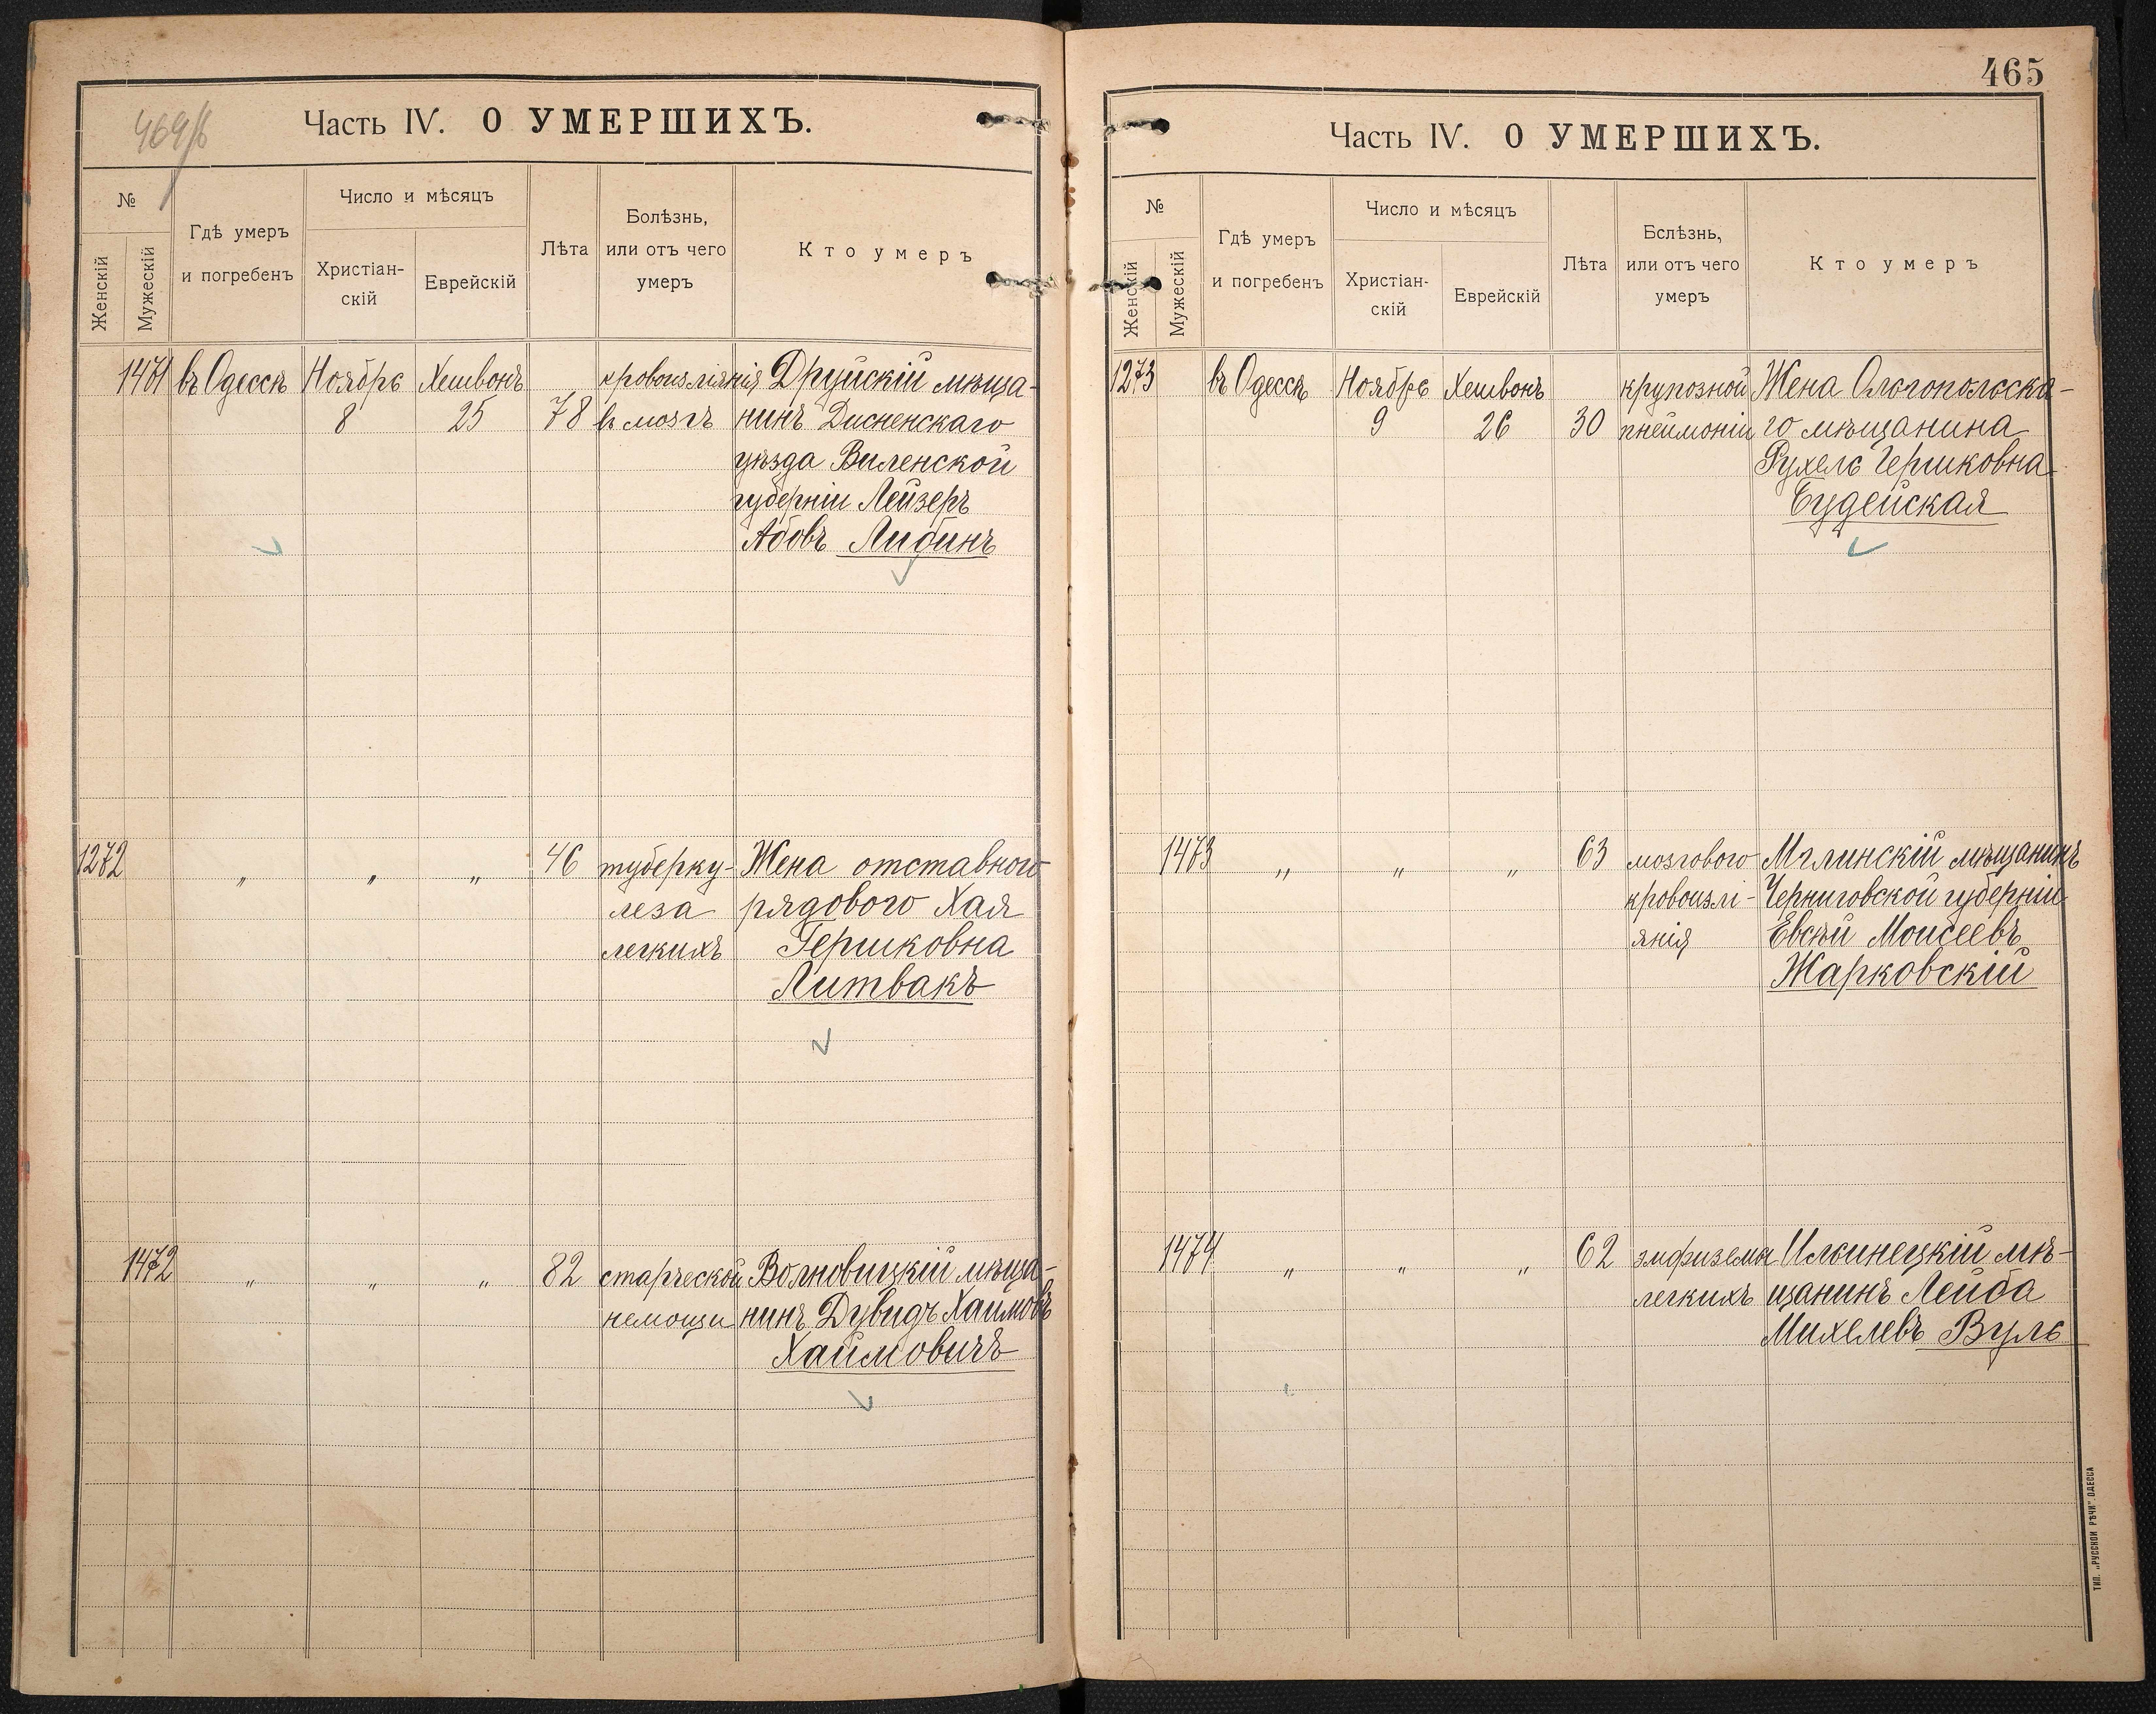 469/б
Часть IV. О УМЕРШИХЪ.
№
Женскій
Мужескій
Гдѣ умеръ
и погребенъ
Число и мѣсяцъ
Христіан-
скій
Еврейскій
Лѣта
Болѣзнь,
или отъ чего
умеръ
Кто умеръ
1471 въ Одессѣ Ноябрь Хешвонъ кровоизліянія Друйскій мѣща-
8 25 78 въ мозгъ нинъ Дисненскаго
уѣзда Виленской
губерніи Лейзеръ
Абовъ Либинъ
1272 „ „ „ 46 туберку- Жена отставного
леза рядового Хая
легкихъ Гершковна
Литвакъ
1472 „ „ „ 82 старческой Волковицкій мѣща-
немощи нинъ Дувидъ Хаимовъ
Хаймовичъ
465
Часть IV. О УМЕРШИХЪ.
№
Женскій
Мужескій
Гдѣ умеръ
и погребенъ
Число и мѣсяцъ
Христіан-
скій
Еврейскій
Лѣта
Бслѣзнь,
или отъ чего
умеръ
Кто умеръ
1273 въ Одессѣ Ноябрь Хешвонъ крупозной Жена Ольгопольска-
9 26 30 пнеймоніи го мѣщанина
Рухель Гершковна
Будейская
1473 „ „ „ 63 мозгового Мглинскій мѣщанинъ
кровоизлі- Черниговской губерніи
янія Евсѣй Моисеевъ
Жарковскій
1474 „ „ „ 62 эмфизема Ильинецкій мѣ-
легкихъ щанинъ Лейба
Михелевъ Вуль
ТИП. „РУССКОЙ РѢЧИ“ ОДЕССА